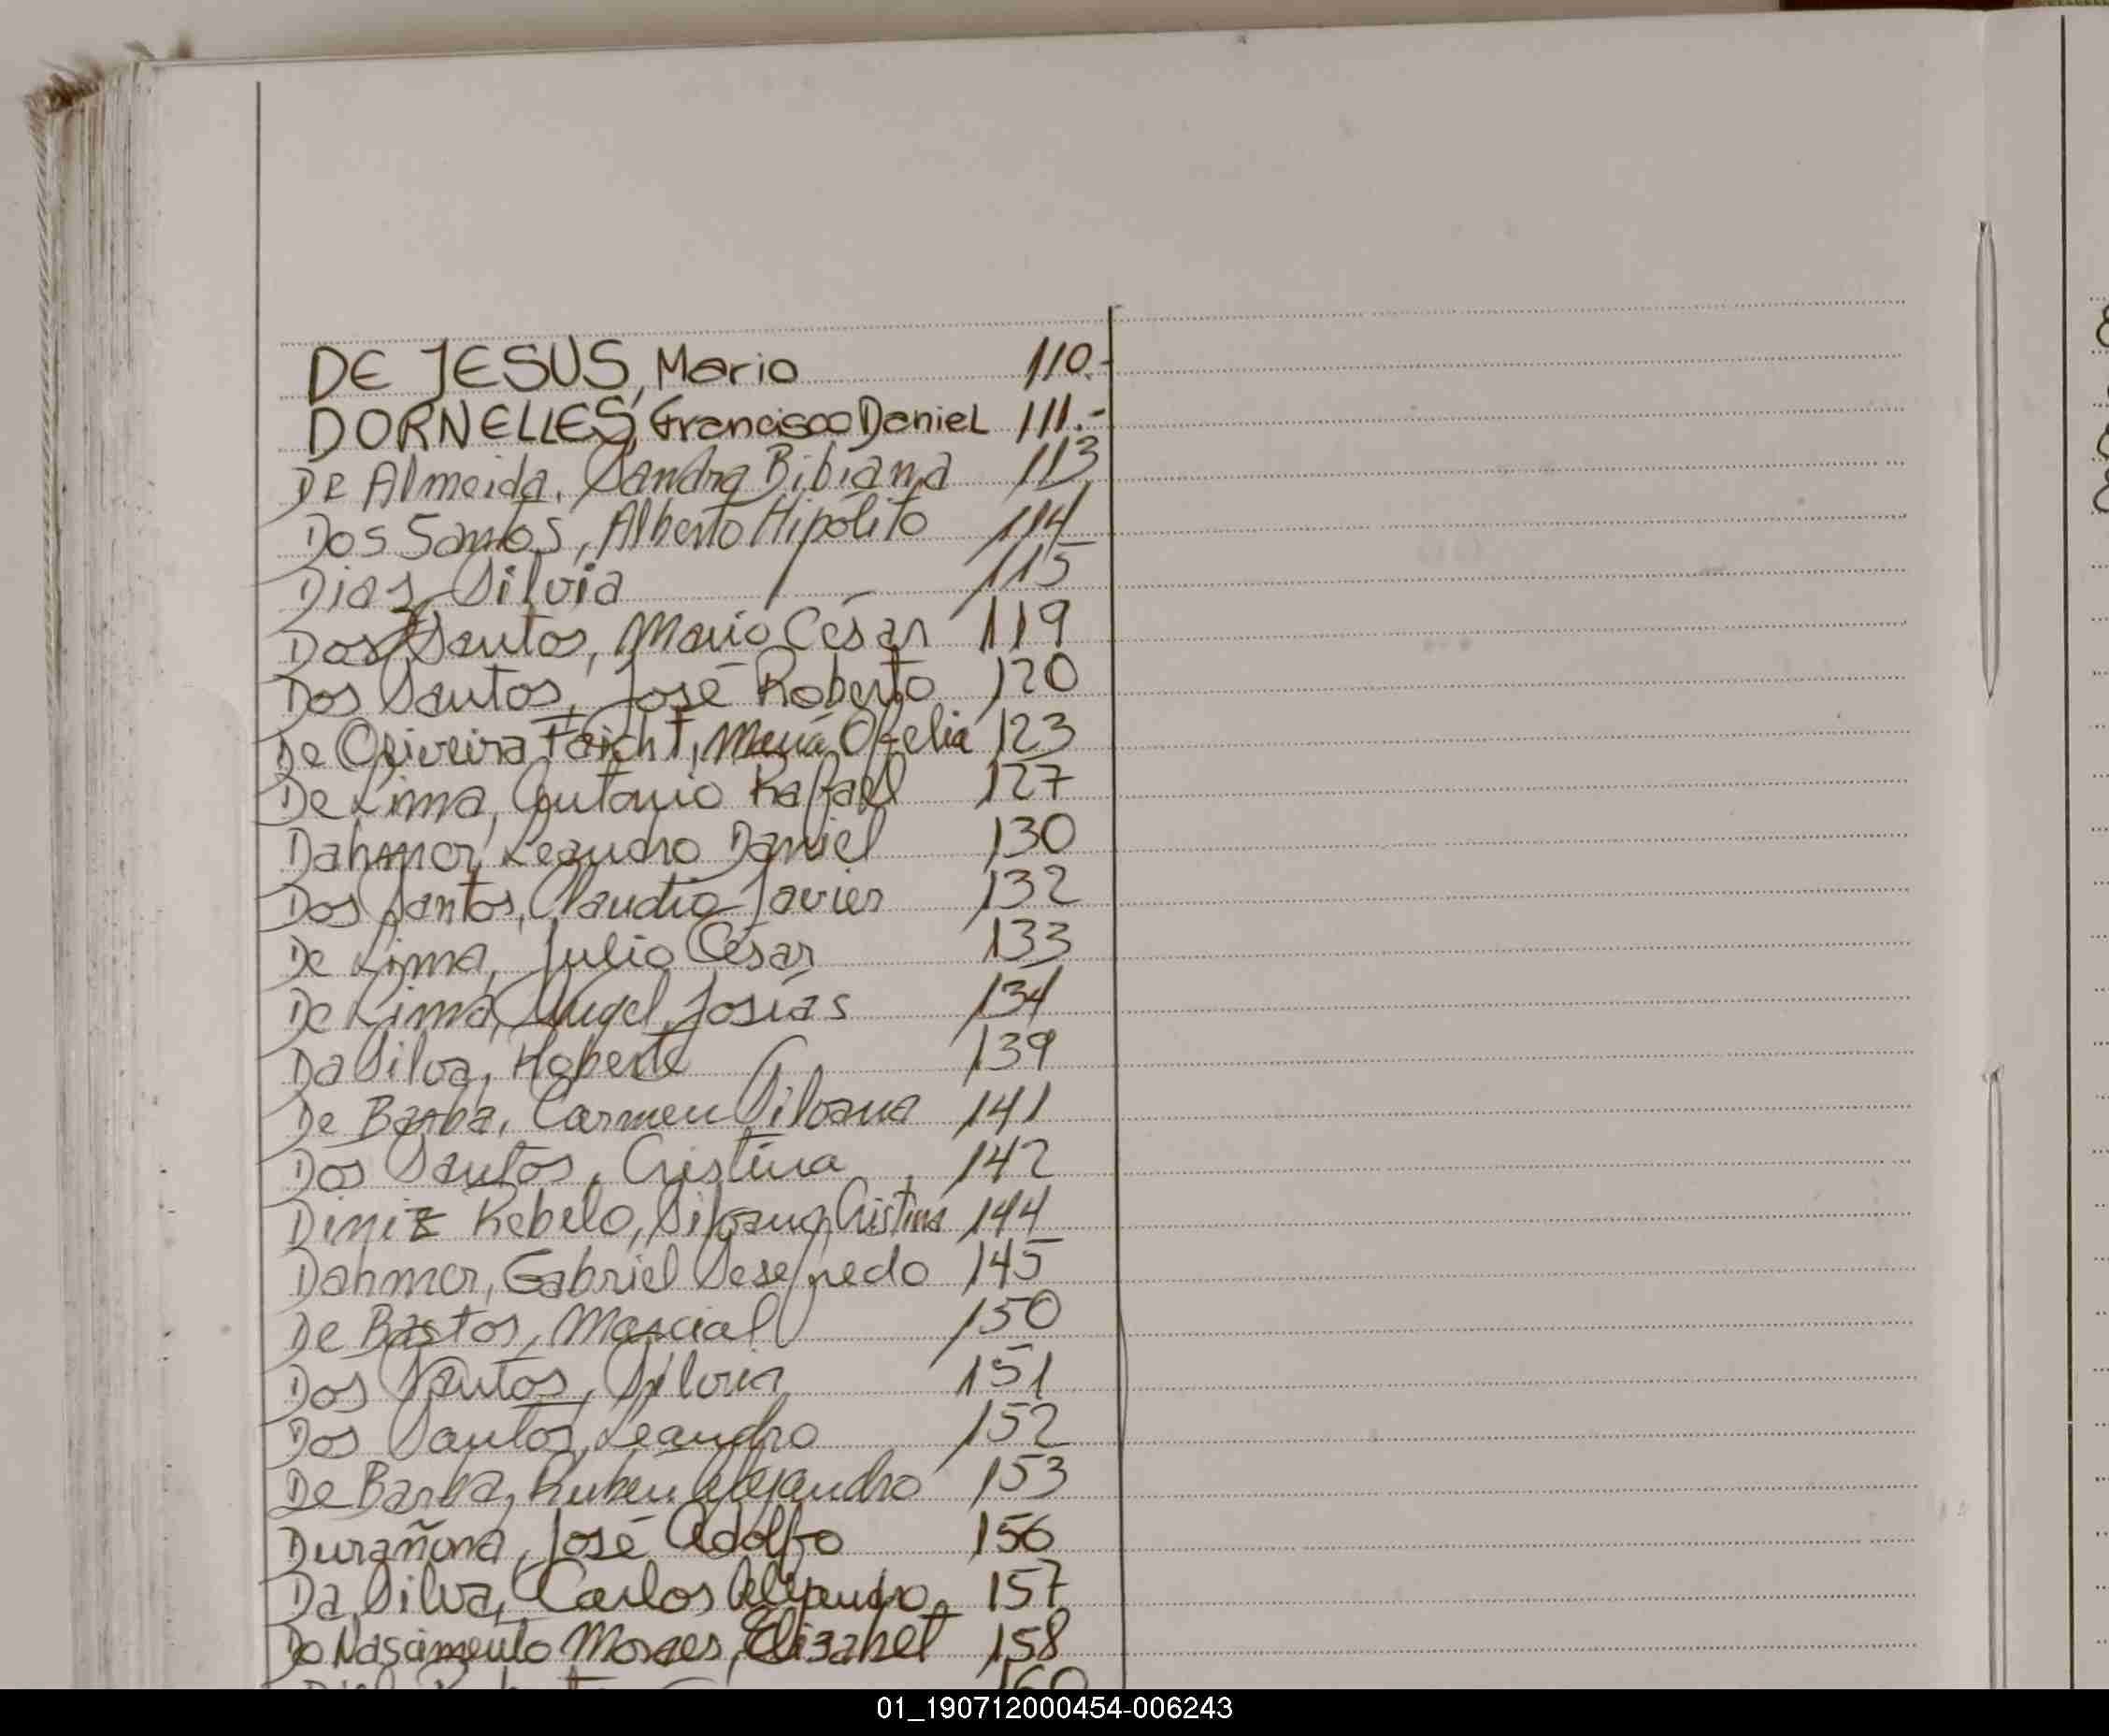 DE JESUS, Mario 110.-
DORNELLES, Francisco Daniel 111.-
De Almeida, Sandra Bibiana 113
Dos Santos, Alberto Hipólito 114
Dias, Silvia 115
Dos Santos, Mario César 119
Dos Santos, José Roberto 120
De Oliveira Faicht, María Ofelia 123
De Lima, Antonio Rafael 127
Dahmer, Leandro Daniel 130
Dos Santos, Claudio Javier 132
De Lima, Julio César 133
De Lima, Angel Josías 134
Da Silva, Roberto 139
De Barba, Carmen Silvana 141
Dos Santos, Cristina 142
Diniz Rebelo, Silvana Cristina 144
Dahmer, Gabriel Sesefredo 145
De Bastos, Marcial 150
Dos Santos, Silvia 151
Dos Santos, Leandro 152
De Barba, Rubén Alejandro 153
Durañona, José Adolfo 156
Da Silva, Carlos Alejandro 157
Do Nascimento Moraes, Elizabet 158
160
01_190712000454-006243